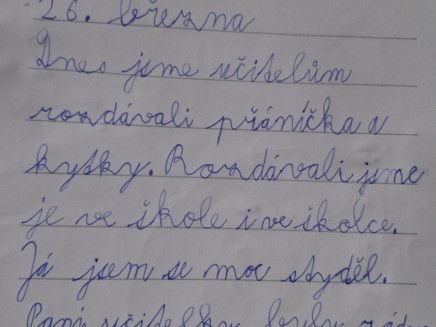 26. března
Dnes jsme učitelům
rozdávali přáníčka a
kytky. Rozdávali jsme
je ve škole i ve školce.
Já jsem se moc styděl.
Paní učitelky byly